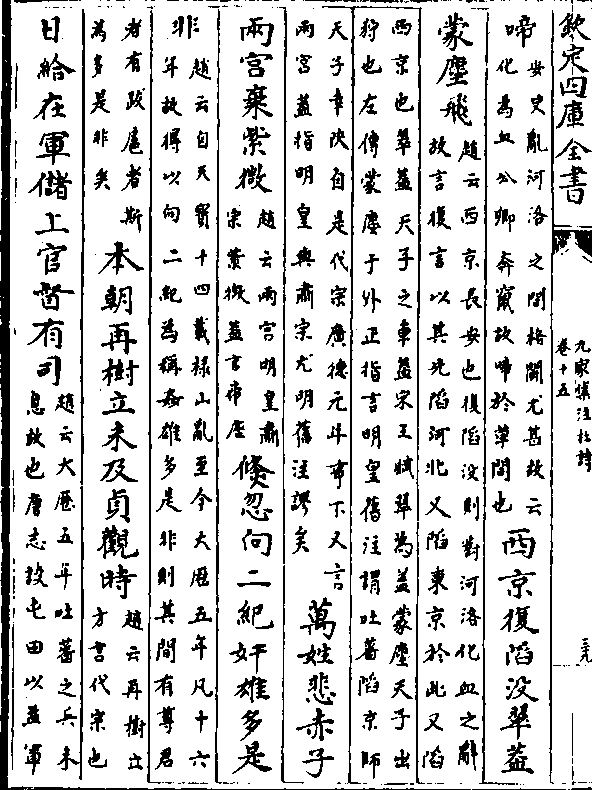 欽定四庫全書
九家集注杜詩
卷十五
三九
啼
安史亂河洛之間格鬭尤甚故云
化為血公卿奔竄故啼於草間也
西京復陷没翠蓋
蒙塵飛
趙云西京長安也復陷没則對河洛化血之辭
故言復言以其先陷河北又陷東京於此又陷
西京也翠蓋天子之車蓋宋玉賦翠為蓋蒙塵天子出
狩也左傳蒙塵于外正指言明皇舊注謂吐蕃陷京師
天子幸陜自是代宗廣徳元年事下又言
兩宮蓋指明皇與肅宗尤明舊注謬矣
萬姓悲赤子
兩宮棄紫微
趙云兩宮明皇肅
宗紫微蓋言帝座
倐忽向二紀奸雄多是
非
趙云自天寳十四載禄山亂至今大厯五年凡十六
年故得以向二紀為稱奸雄多是非則其間有尊君
者有跋扈者斯
為多是非矣
本朝再樹立未及貞觀時
趙云再樹立
方言代宗也
日給在軍儲上官督有司
趙云大厯五年吐蕃之兵未
息故也唐志設屯田以益軍